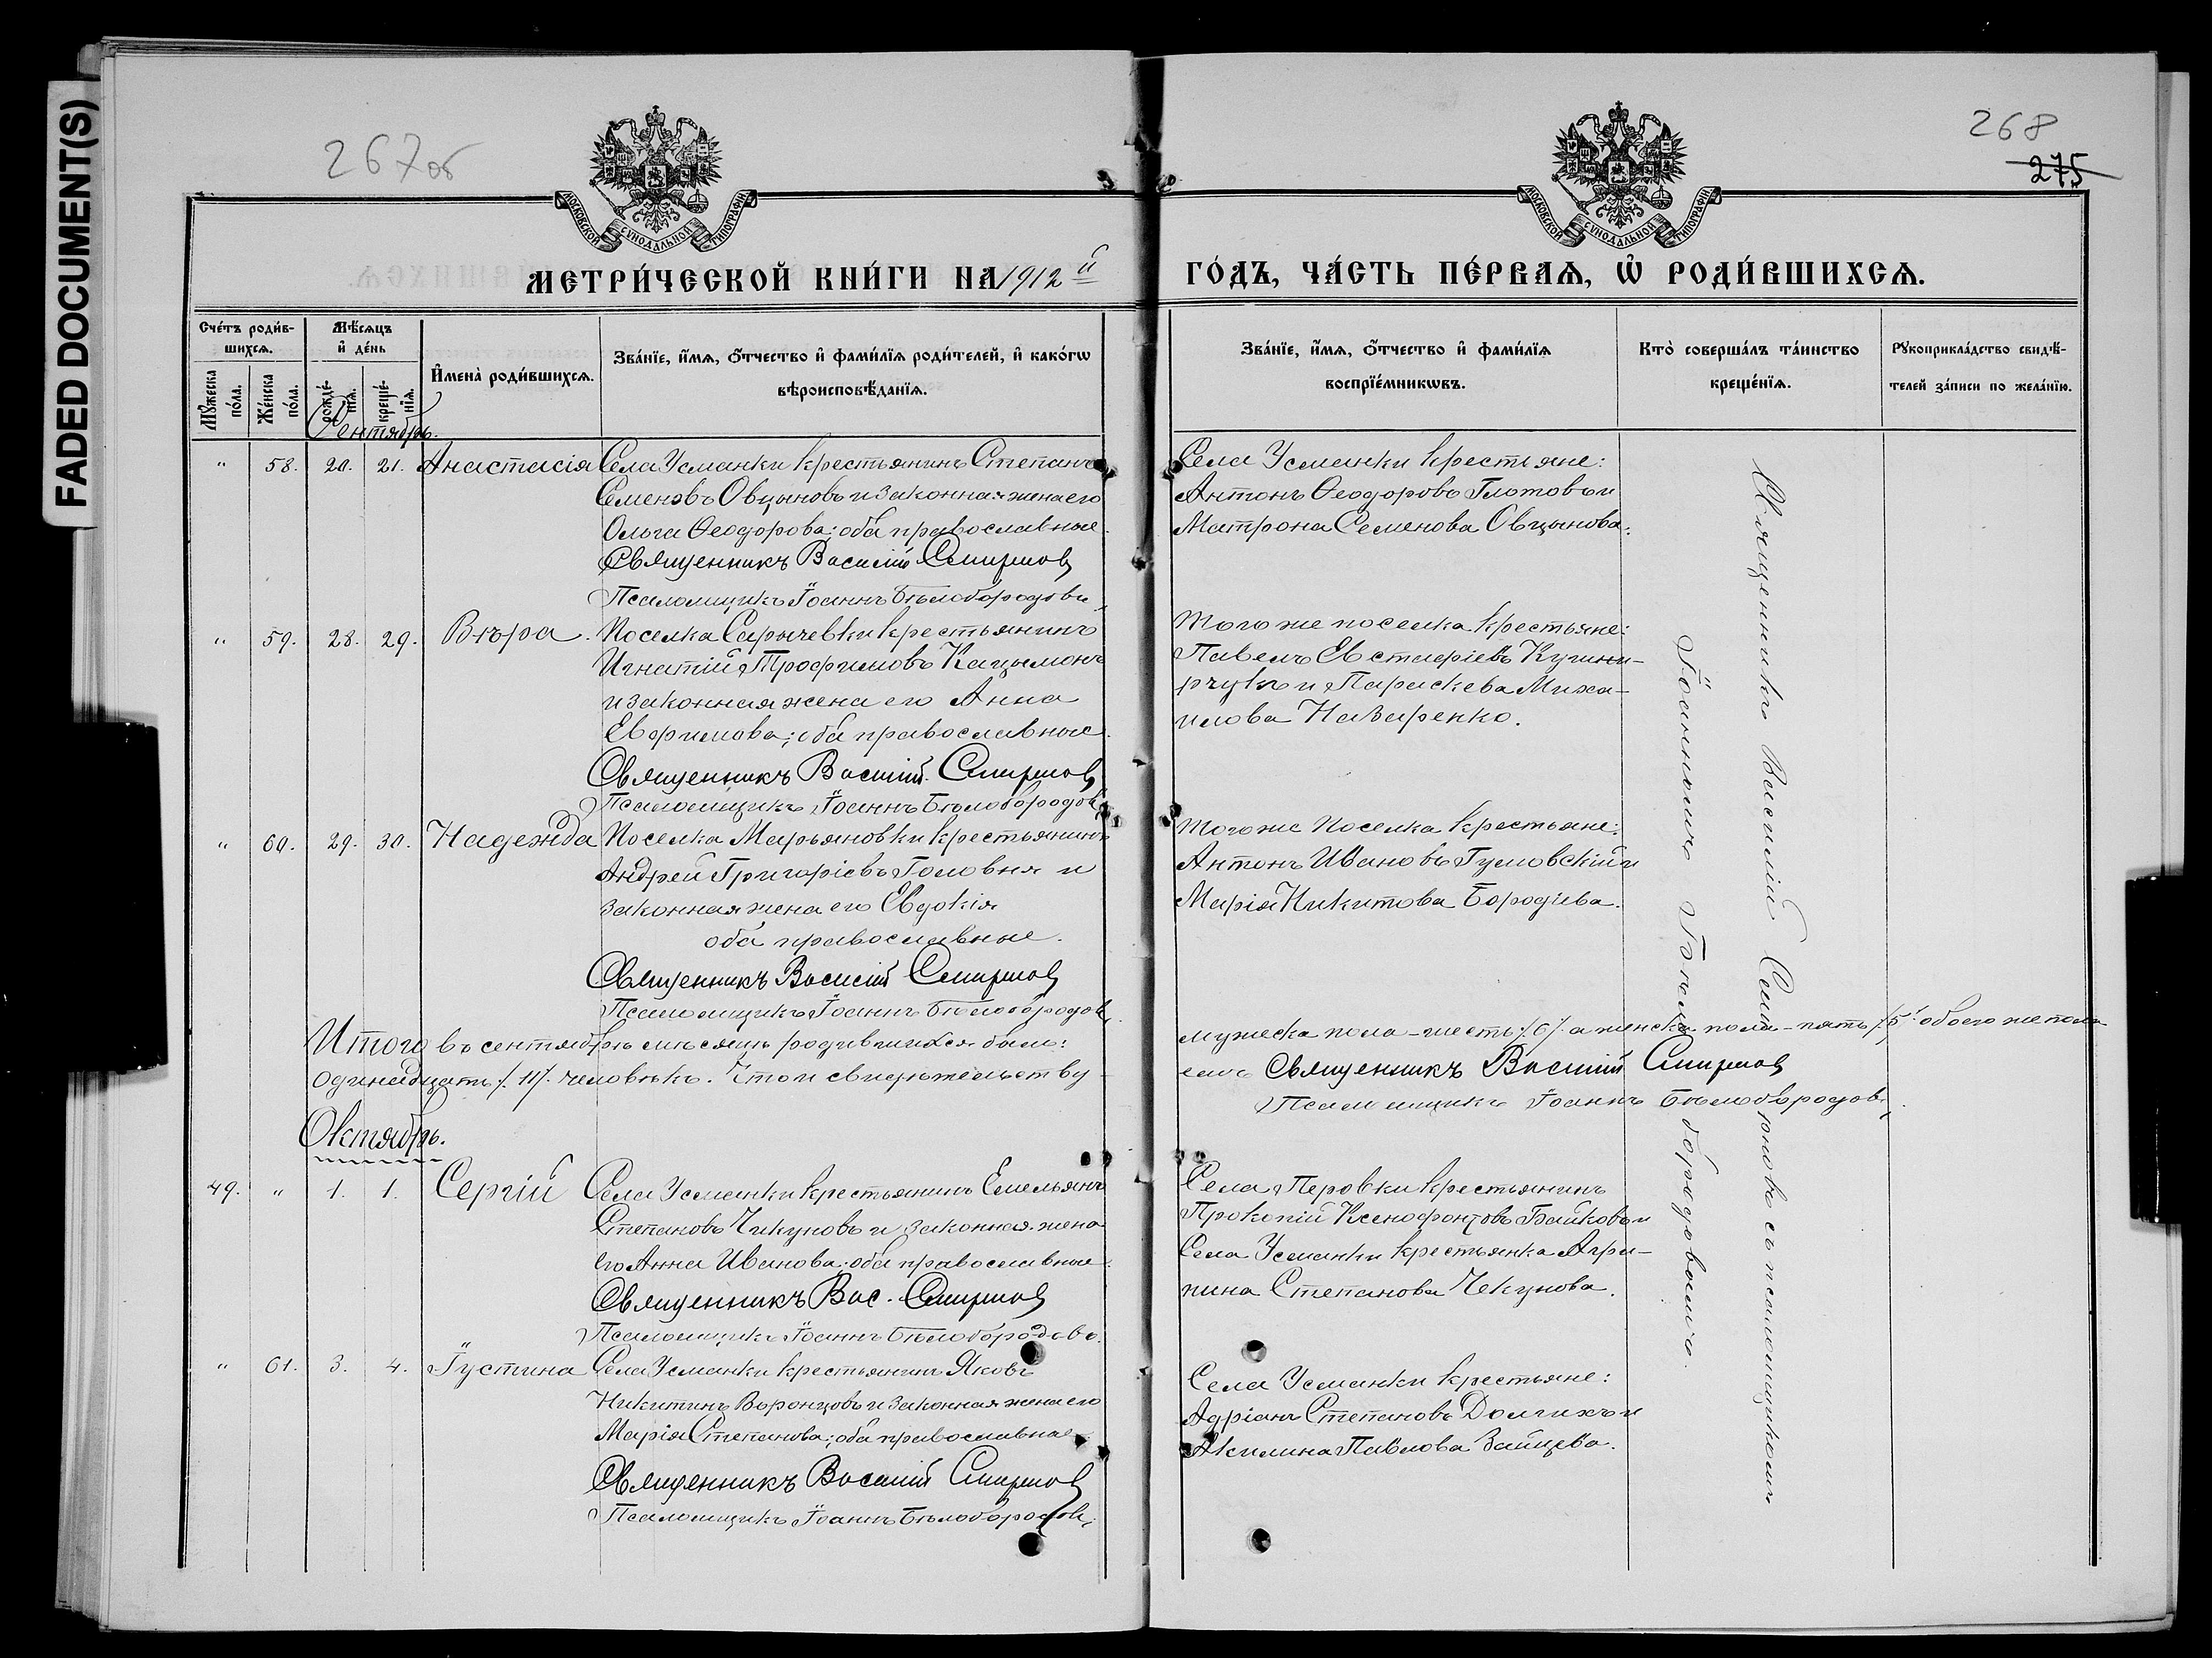 FADED DOCUMENT(S)
267об
268
275
МОСКОВСКОЙ СѴНОДАЛЬНОЙ ТИПОГРАФІИ
МОСКОВСКОЙ СѴНОДАЛЬНОЙ ТИПОГРАФІИ
МЕТРИ́ЧЕСКОЙ КНИ́ГИ НА 1912й
ГО́ДЪ, ЧА́СТЬ ПЕ́РВАѦ, Ѡ҆ РОДИ́ВШИХСѦ.
Сче́тъ роди́в-
шихсѧ.
Мꙋ́жеска по́ла.
Же́нска по́ла.
Мѣ́сѧцъ
и҆ де́нь
рожде́-
нїѧ.
креще́-
нїѧ.
И҆мена̀ роди́вшихсѧ.
Зва́нїе, и҆́мѧ, ѻ҆́тчество и҆ фами́лїѧ роди́телей, и҆ како́гѡ
вѣроисповѣ́данїѧ.
Зва́нїе, и҆́мѧ, ѻ҆́тчество и҆ фами́лїѧ
воспрїе́мникѡвъ.
Кто̀ соверша́лъ та́инство
креще́нїѧ.
Рꙋкоприкла́дство свидѣ́-
телей за́писи по жела́нїю.
Сентябрь.
" 58. 20. 21. Анастасія Села Усманки крестьянинъ Степанъ
Семеновъ Овцыновъ и законная жена его
Ольга Ѳеодорова; оба православные.
Священникъ Василій Смирновъ
Псаломщикъ Іоаннъ Бѣлобородовъ
Села Усманки крестьяне:
Антонъ Ѳеодоровъ Глотовъ и
Матрона Семенова Овцынова.
" 59. 28. 29. Вѣра. Поселка Сарычевки крестьянинъ
Игнатій Трофимовъ Кацымонъ
и законная жена его Анна
Евфимова; оба православные.
Священникъ Василій Смирновъ
Псаломщикъ Іоаннъ Бѣлобородовъ
Того же поселка крестьяне:
Павелъ Евстафіевъ
и Параскева Миха-
илова Назаренко.
" 60. 29. 30. Надежда Поселка Марьяновки крестьянинъ
Андрей Григоріевъ Головня и
законная жена его Евдокія
оба православные.
Священникъ Василій Смирновъ
Псаломщикъ Іоаннъ Бѣлобородовъ
Того же поселка крестьяне:
Антонъ Ивановъ Гуловскій и
Марія Никитова Бородіева.
Итого въ сентябрѣ мѣсяцѣ родившихся было:
мужеска пола - шесть /6/ а женска пола - пять /5/ обоего же пола
одинадцать /11/ человѣкъ. Въ томъ свидѣтельству-
емъ Священникъ Василій Смирновъ
Псаломщикъ Іоаннъ Бѣлобородовъ.
Октябрь.
49. " 1. 1. Сергій Села Усманки крестьянинъ Емельянъ
Степановъ Чикуновъ и законная жена
его Анна Иванова; оба православные.
Священникъ Вас. Смирновъ
Псаломщикъ Іоаннъ Бѣлобородовъ.
Села Перовки крестьянинъ
Прокопій Ксенофонтовъ Байковъ и
Села Усманки крестьянка Агри-
пина Степанова Чекунова.
" 61. 3. 4. Іустина Села Усманки крестьянинъ Яковъ
Никитинъ Воронцовъ и законная жена его
Марія Степанова; оба православные
Священникъ Василій Смирновъ
Псаломщикъ Іоаннъ Бѣлобородовъ
Села Усманки крестьяне:
Адріанъ Степановъ Долгихъ и
Акилина Павлова Зайцева.
Священникъ Василій Смирновъ съ псаломщикомъ
Іоанномъ Бѣлобородовымъ.